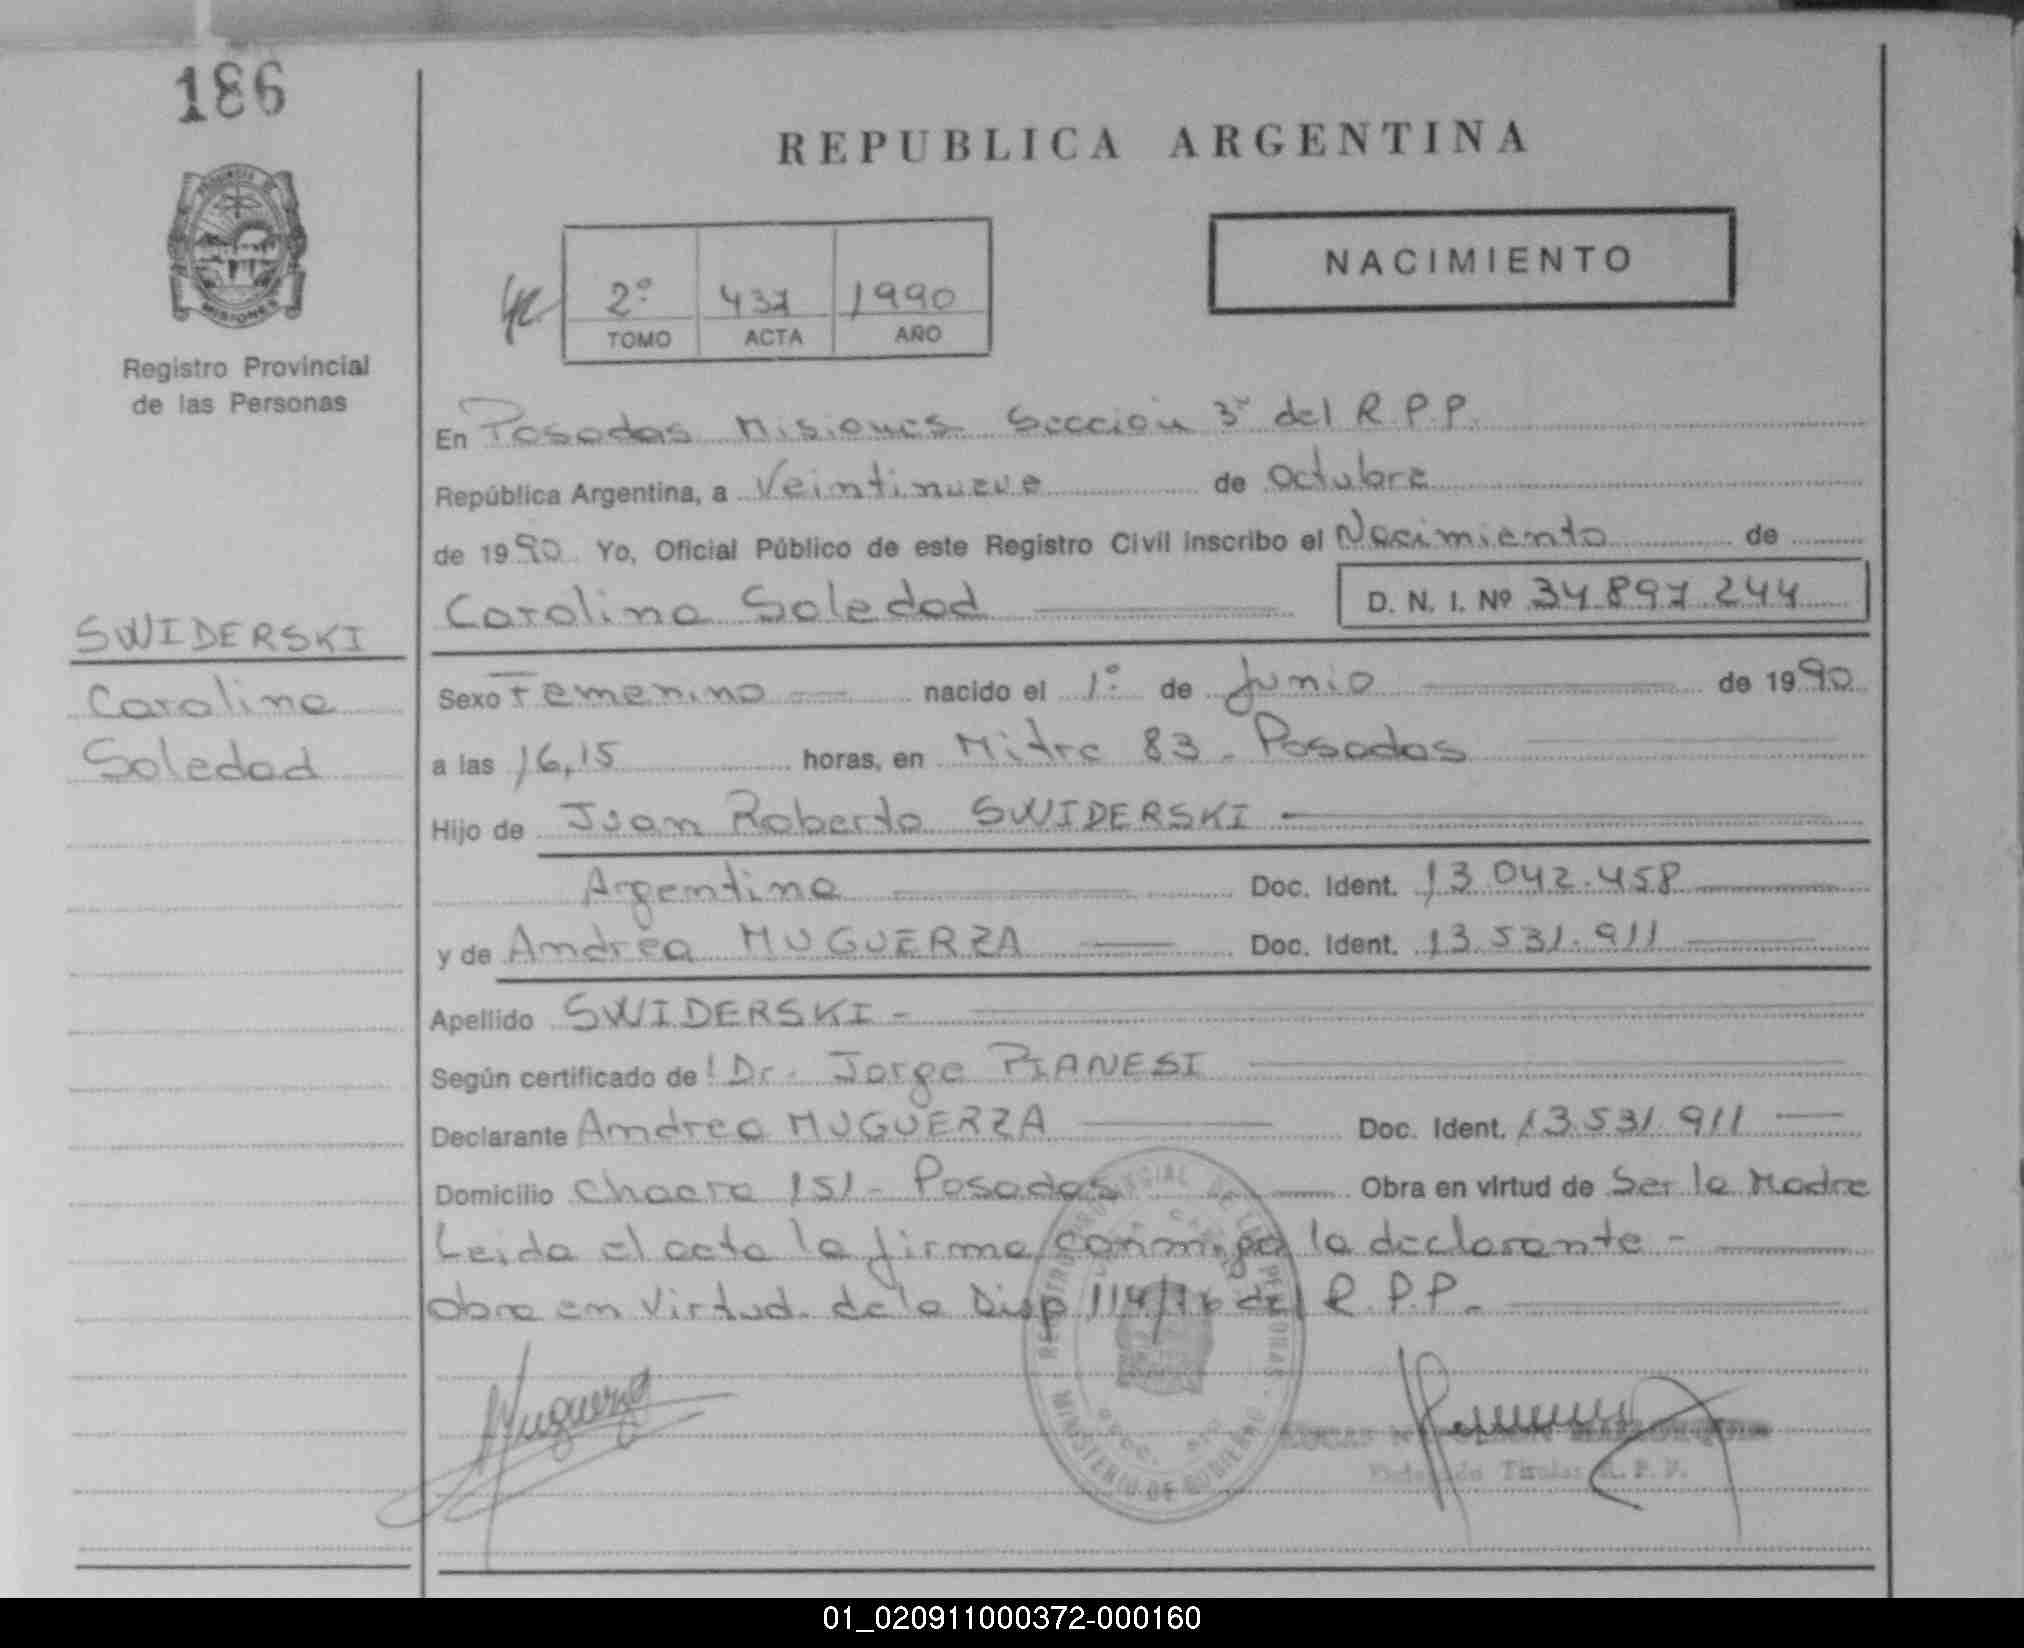 186
REPUBLICA ARGENTINA
PROVINCIA DE
MISIONES
Registro Provincial
de las Personas
NACIMIENTO
2º 437 1990
TOMO ACTA AÑO
En Posadas Misiones Sección 3ª del R.P.P.
República Argentina, a Veintinueve de Octubre
de 1990 Yo, Oficial Público de este Registro Civil inscribo el Nacimiento de
Carolina Soledad D. N. I. Nº 34.897.244
SWIDERSKI
Carolina
Soledad
Sexo Femenino nacido el 1º de Junio de 1990
a las 16,15 horas, en Mitre 83 - Posadas
Hijo de Juan Roberto SWIDERSKI
Argentino Doc. Ident. 13.042.458
y de Andrea MUGUERZA Doc. Ident. 13.531.911
Apellido SWIDERSKI -
Según certificado de Dr. Jorge PIANESI
Declarante Andrea MUGUERZA Doc. Ident. 13.531.911
Domicilio Chacra 151 - Posadas Obra en virtud de Ser la Madre
Leida el acta la firma conmigo la declarante -
obra en Virtud de la Disp 114/76 del R.P.P.
REGISTRO PROVINCIAL DE LAS PERSONAS
MINISTERIO DE GOBIERNO
Muguerza
Titular R. P. P.
01_020911000372-000160